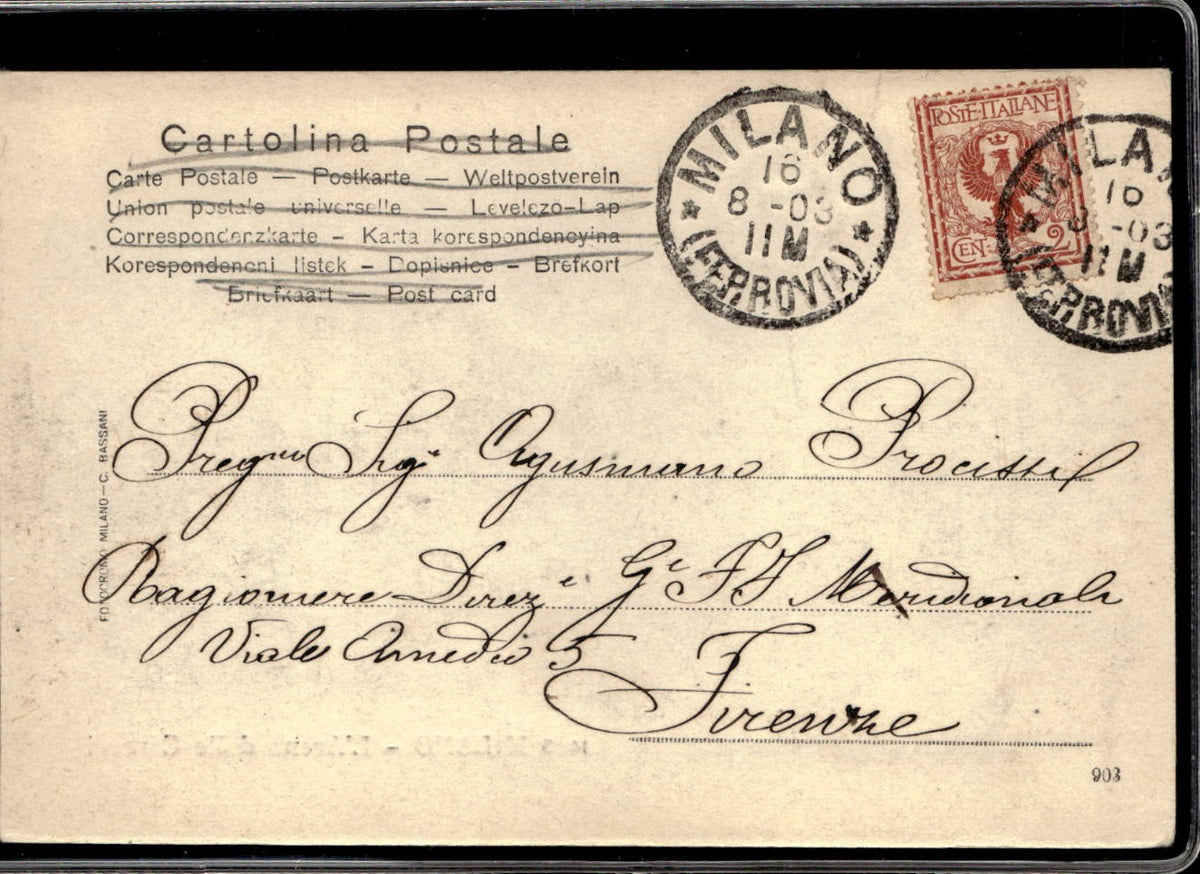 Cartolina Postale
Carte Postale — Postkarte — Weltpostverein
Union postale universelle — Levelező-Lap
Correspondenzkarte – Karta korespondencyina
Korespondencni listek – Dopisnice – Brefkort
Briefkaart — Post card
MILANO
16
8 -03
11M
(FERROVIA)
POSTE·ITALIANE
CEN. 2
MILAN
16
8 -03
11M
(FERROVIA
FOTOCROMO MILANO—C. BASSANI
Pregmo Sigr Agusmano Procissi
Ragioniere Direze Gle FF Meridionali
Viale Amedeo 5
Firenze
903